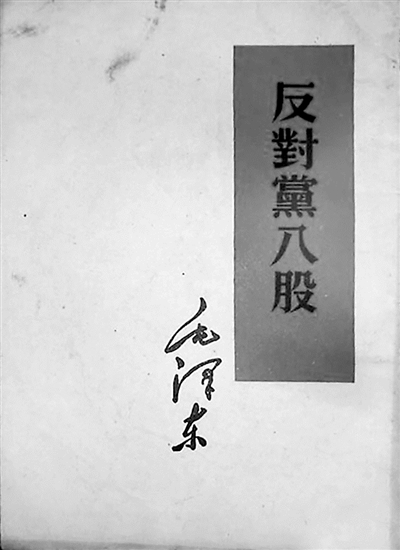 反對黨八股
毛泽东